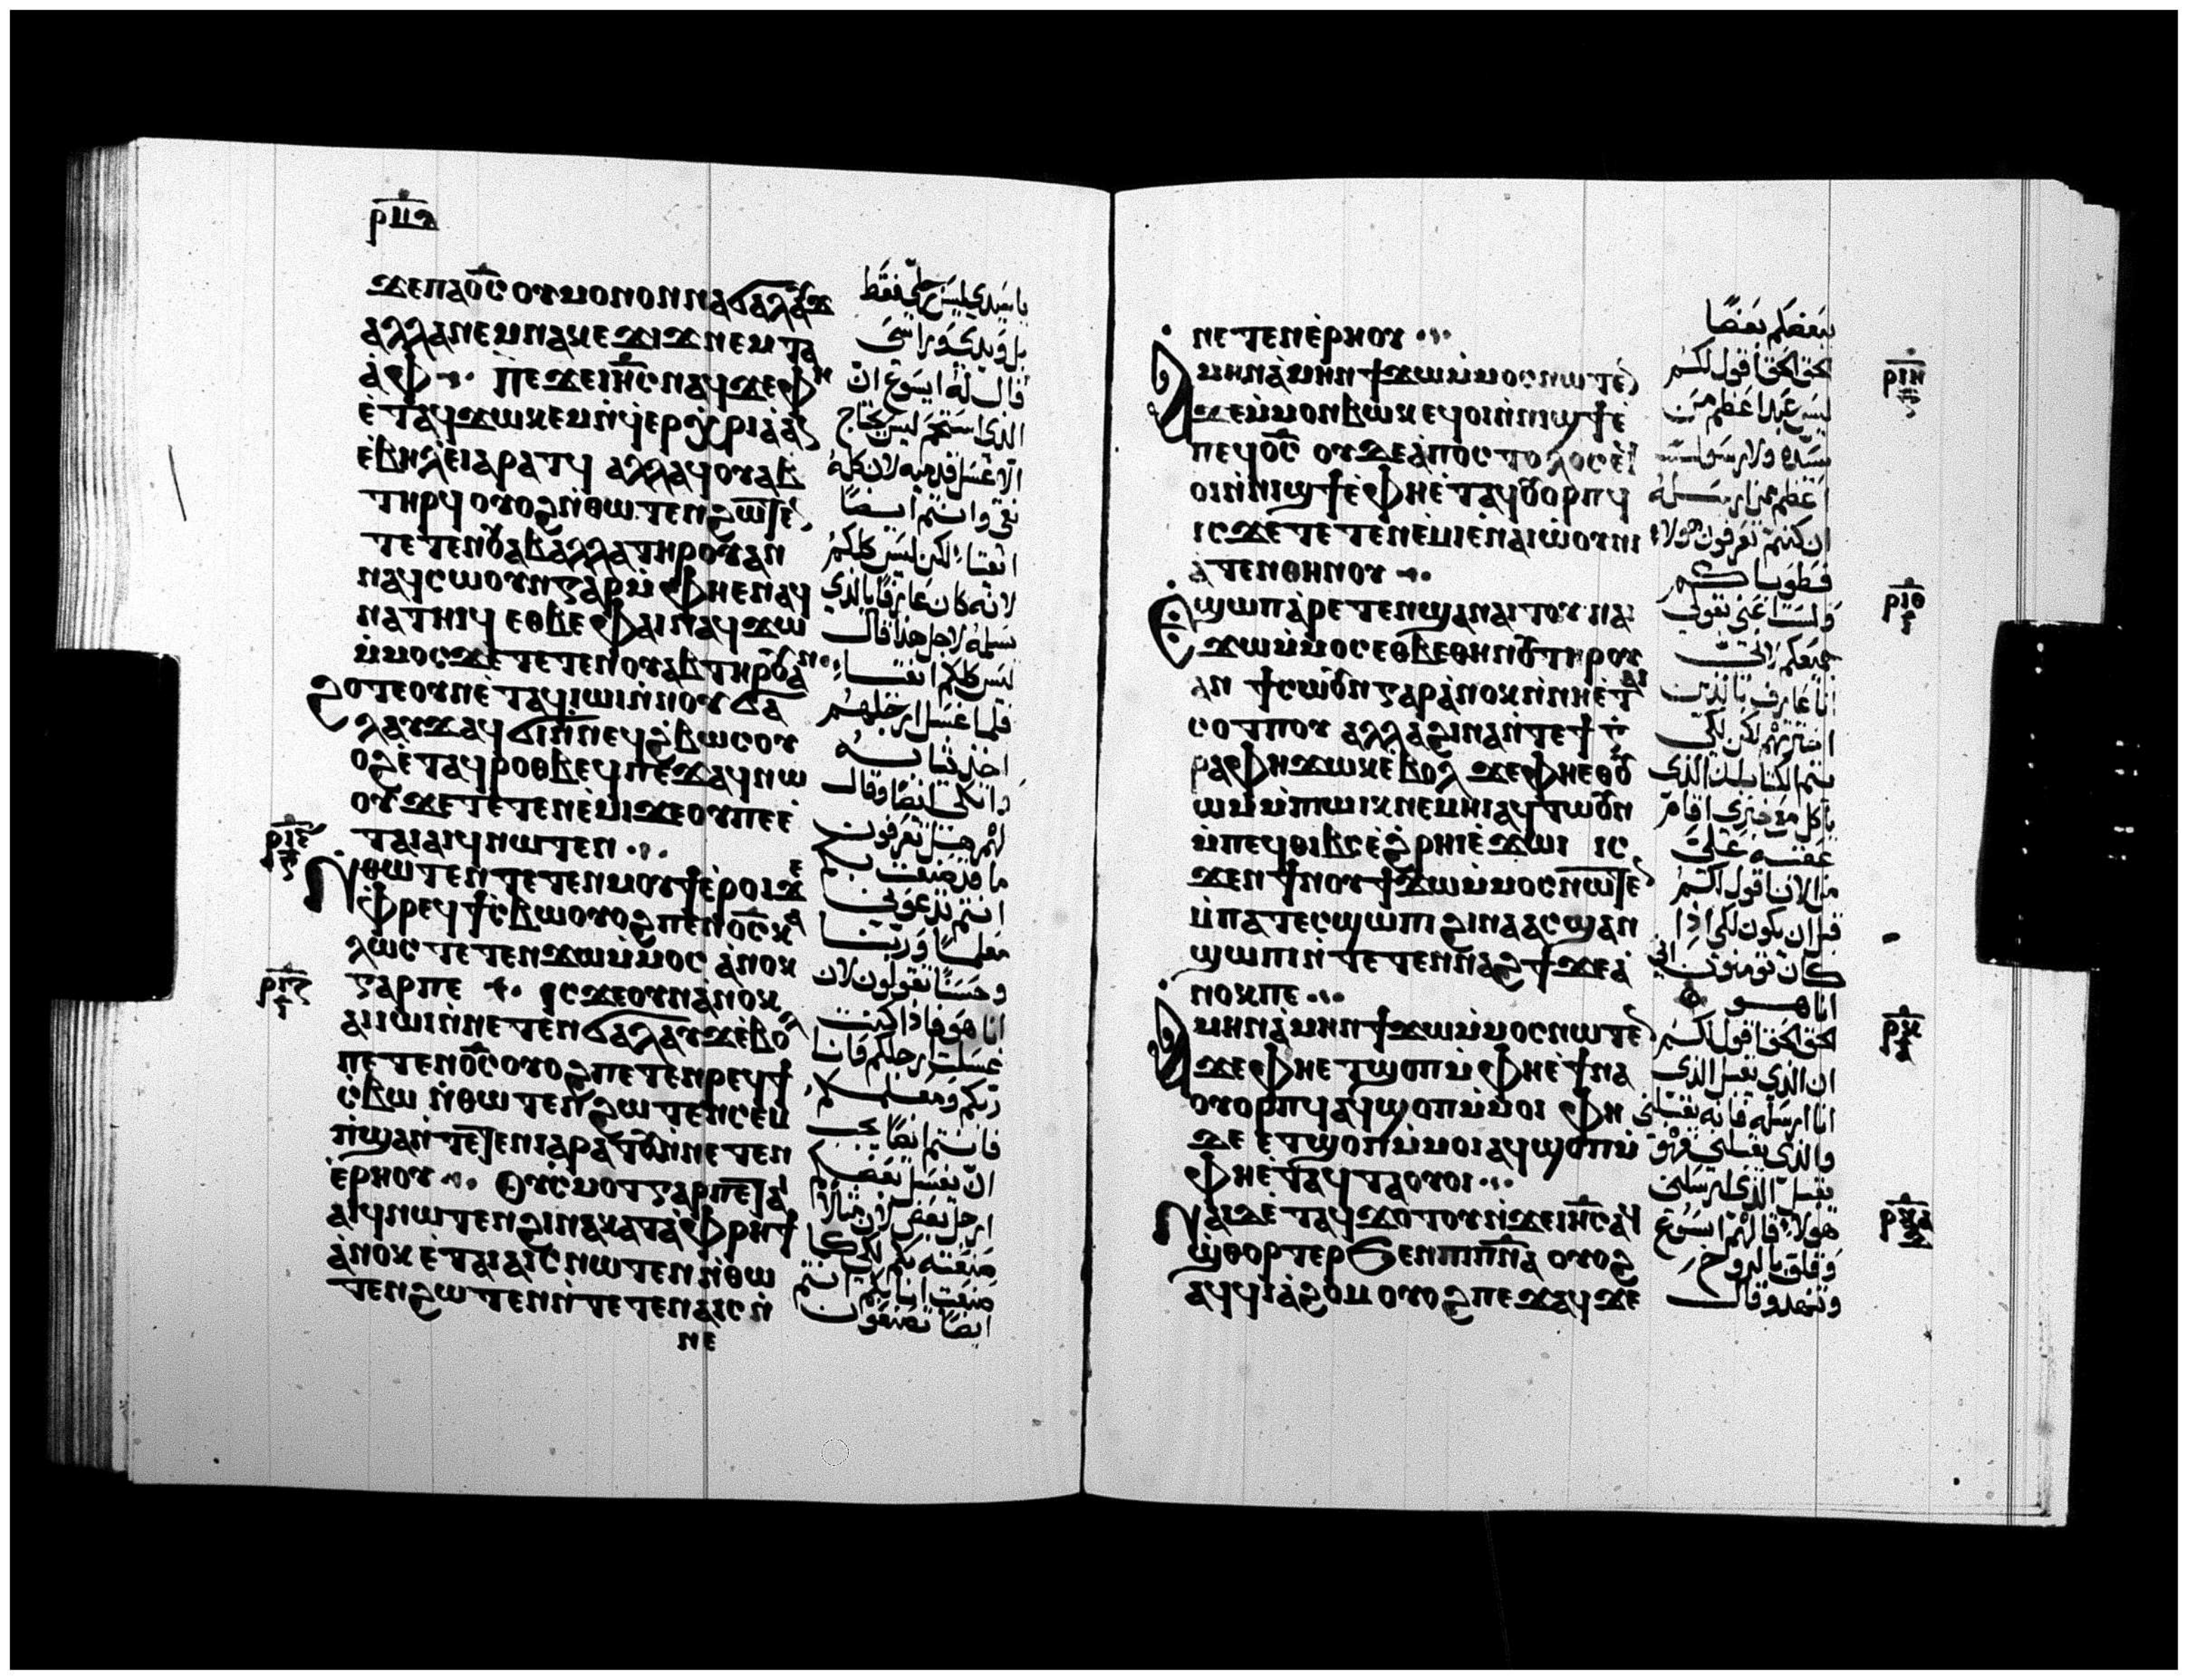 ϫⲉⲡⲁϭ̅ⲥ̅ ⲟⲩⲙⲟⲛⲟⲛⲛⲁϭⲁⲗⲁⲩϫ
ⲁⲗⲗⲁⲛⲉⲙⲛⲁⲕⲉϫⲓϫⲛⲉⲙⲧⲁ
ⲁ̀ⲫⲉ ⲡⲉϫⲉⲓⲏ̅ⲥ̅ⲛⲁϥϫⲉⲫⲏ
ⲉ̀ⲧⲁϥϫⲱⲕⲉⲙⲛ̀ϥ̀ⲉⲣⲭⲣⲓⲁⲁⲛ
ⲉ̀ⲃⲏⲗⲉ̀ⲓⲁⲣⲁⲧϥ ⲁⲗⲗⲁϥⲟⲩⲁⲃ
ⲧⲏⲣϥⲟⲩⲟϩⲛ̀ⲑⲱⲧⲉⲛϩⲱⲧⲉⲛ
ⲧⲉⲧⲉⲛⲟⲩⲁⲃⲁⲗⲗⲁⲧⲏⲣⲟⲩⲁⲛ
ⲛⲁϥⲥⲱⲟⲩⲛⲅⲁⲣⲙ̀ⲫⲏⲉⲛⲁϥ
ⲛⲁⲧⲏⲓϥ ⲉⲑⲃⲉⲫⲁⲓⲛⲁϥϫⲱ
ⲙ̀ⲙⲟⲥϫⲉⲧⲉⲧⲉⲛⲟⲩⲁⲃⲧⲏⲣⲟⲩⲁⲛ
ϩⲟⲧⲉⲟⲩⲛⲉ̀ⲧⲁϥⲓⲱⲓⲛ̀ⲛⲟⲩϭⲁ
ⲗⲁⲩϫⲁϥϭⲓⲛ̀ⲛⲉϥϩ̀ⲃⲱⲥⲟⲩ
ⲟϩⲉ̀ⲧⲁϥⲣⲟⲑⲃⲉϥⲡⲉϫⲁϥⲛⲱ
ⲟⲩϫⲉⲧⲉⲧⲉⲛⲉ̀ⲙⲓϫⲉⲟⲩⲡⲉⲉ̀
ⲧⲁⲓⲁⲓϥⲛⲱⲧⲉⲛ
ⲛ̀ⲑⲱⲧⲉⲛⲧⲉⲧⲉⲛⲙⲟⲩϯⲉ̀ⲣⲟⲓϫⲉ
ⲫ̀ⲣⲉϥϯⲥⲃⲱⲟⲩⲟϩⲡⲉⲛϭ̅ⲥ̅ⲕⲁ
ⲗⲱⲥ ⲧⲉⲧⲉⲛϫⲱⲙ̀ⲙⲟⲥ ⲁ̀ⲛⲟⲕ
ⲅⲁⲣⲡⲉ ⲓⲥϫⲉⲟⲩⲛⲁ̀ⲛⲟⲕ
ⲁⲓⲓⲱⲓⲛ̀ⲛⲉⲧⲉⲛϭⲁⲗⲁⲩϫⲉ̀ⲃⲟⲗ
ⲡⲉⲧⲉⲛϭ̅ⲥ̅ⲟⲩⲟϩⲡⲉⲧⲉⲛⲣⲉϥϯ
ⲥ̀ⲃⲱ ⲛ̀ⲑⲱⲧⲉⲛϩⲱⲧⲉⲛⲥⲉⲙ̀
ⲡ̀ϣⲁⲛ̀ⲧⲉⲧⲉⲛⲓⲁⲣⲁⲧⲟⲩⲛ̀ⲛⲉⲧⲉⲛ
ⲉ̀ⲣⲏⲟⲩ ⲟⲩⲥ̀ⲙⲟⲧⲅⲁⲣⲡⲉⲧⲁ
ⲁⲓϥⲛⲱⲧⲉⲛϩⲓⲛⲁⲕⲁⲧⲁⲫ̀ⲣⲏϯ
ⲁ̀ⲛⲟⲕⲉ̀ⲧⲁⲓⲁⲓⲥⲛⲱⲧⲉⲛⲛ̀ⲑⲱ
ⲧⲉⲛϩⲱⲧⲉⲛⲛ̀ⲧⲉⲧⲉⲛⲁⲓⲥⲛ̀
ⲛⲉ
ⲣⲓ̅ⲉ̅
ⲣⲓ̅ⲍ̅
يا سيدي ليس رجلي فقط
بل ويدي وراسي
قال له ايسوع ان
الذي استحم ليس يحتاج
الا غسل قدميه لانه كله
نقي وانتم ايضًا
انقيا لكن ليس كلكم
لانه كان عارفًا بالذي
يسلمه لاجل هذا قال
ليس كلكم انقيا
فلما غسل ارجلهم
اخذ ثيابه
واتكى ايضًا وقال
لهم هل تعرفون
ما قد صنعت بكم
انتم تدعوني
معلمًا وربًا
وحسنًا تقولون لان
انا هو فاذا كنت
غسلت ارجلكم فانا
ربكم ومعلمكم
فانتم ايضًا يجب
ان يغسل بعضكم
ارجل بعض لان مثالًا
صنعته بكم لكي كما
صنعت انا بكم انتم
ايضًا تصنعون
ⲛⲉⲧⲉⲛⲉ̀ⲣⲏⲟⲩ
ⲁⲙⲏⲛⲁ̀ⲙⲏⲛϯϫⲱⲙ̀ⲙⲟⲥⲛⲱⲧⲉⲛ
ϫⲉⲙ̀ⲙⲟⲛⲃⲱⲕⲉϥⲟⲓⲛ̀ⲛⲓϣϯⲉ̀
ⲡⲉϥϭ̅ⲥ̅ ⲟⲩϫⲉⲁ̀ⲡⲟⲥⲧⲟⲗⲟⲥⲉϥ
ⲟⲓⲛ̀ⲛⲓϣϯⲉ̀ⲫⲏⲉ̀ⲧⲁϥⲟⲩⲟⲣⲡϥ
ⲓⲥϫⲉⲧⲉⲧⲉⲛⲉ̀ⲙⲓⲉ̀ⲛⲁⲓⲱⲟⲩⲛⲓ
ⲁ̀ⲧⲉⲛⲑⲏⲛⲟⲩ
ⲉϣⲱⲡⲁ̀ⲣⲉⲧⲉⲛϣⲁⲛⲁⲓⲧⲟⲩ ⲛⲁⲓ
ϫⲱⲙ̀ⲙⲟⲥⲉⲑⲃⲉⲑⲏⲛⲟⲩⲧⲏⲣⲟⲩ
ⲁⲛ ϯⲥⲱⲟⲩⲛⲅⲁⲣⲁ̀ⲛⲟⲕⲛ̀ⲛⲏⲉ̀ⲧⲁⲓ
ⲥⲟⲧⲡⲟⲩ ⲁⲗⲗⲁϩⲓⲛⲁⲛ̀ⲧⲉϯⲅ̀
ⲣⲁⲫⲏϫⲱⲕⲉ̀ⲃⲟⲗ ϫⲉⲫⲏⲉⲑⲟⲩ
ⲱⲙⲙ̀ⲡⲱⲓⲕⲛⲉⲙⲏⲓⲁϥⲧⲱⲟⲩⲛ
ⲙ̀ⲡⲉϥⲑⲓⲃⲥⲉ̀ϩ̀ⲣⲏⲓⲉ̀ϫⲱⲓ ⲓⲥ
ϫⲉⲛϯⲛⲟⲩϯϫⲱⲙ̀ⲙⲟⲥⲛⲱⲧⲉⲛ
ⲙ̀ⲡⲁⲧⲉⲥϣⲱⲡⲓ ϩⲓⲛⲁⲁⲥϣⲁⲛ
ϣⲱⲡⲓⲛ̀ⲧⲉⲧⲉⲛⲛⲁϩϯϫⲉⲁ̀
ⲛⲟⲕⲡⲉ
ⲁⲙⲏⲛⲁ̀ⲙⲏⲛϯϫⲱⲙ̀ⲙⲟⲥⲛⲱⲧⲉⲛ
ϫⲉⲫⲏⲉⲧϣⲱⲡⲙ̀ⲫⲏⲉ̀ϯⲛⲁ
ⲟⲩⲟⲣⲡϥⲁϥϣⲱⲡⲙ̀ⲙⲟⲓ ⲫⲏ
ϫⲉ ⲉⲧϣⲱⲡⲙ̀ⲙⲟⲓⲁϥϣⲱⲡⲙ̀
ⲫⲏⲉ̀ⲧⲁϥⲧⲁⲟⲩⲟⲓ
ⲛⲁⲓϫⲉⲧⲁϥϫⲟⲧⲟⲩⲛ̀ϫⲉⲓⲏ̅ⲥ̅ⲁϥ
ϣ̀ⲑⲟⲣⲧⲉⲣϧⲉⲛⲡⲓⲡ̅ⲛ̅ⲁ̅ ⲟⲩⲟϩ
ⲁϥϥⲓⲁ̀ϩⲟⲙ ⲟⲩⲟϩⲡⲉϫⲁϥϫⲉ
بعضكم بعضًا
الحق الحق اقول لكم
ليس عبد اعظم من
سيده ولا رسول
اعظم من ارسله
ان كنتم تعرفون هولاء
فطوباكم
ولست اعني بقولي
جميعكم لانني
انا عارف بالذين
اخترتهم لكن لكي
يتم الكتاب ان الذي
ياكل معي خبزي اقام
عقبه عليّ
من الان اقول لكم
قبل ان يكون لكي اذا
كان تومنون اني
انا هو
الحق الحق اقول لكم
ان الذي يقبل الذي
انا ارسله فانه يقبلني
والذي يقبلني فهو
يقبل الذي ارسلني
هولاء قالهم ايسوع
وقلق بالروح
وتنهد وقال
ⲣⲓ̅ⲏ̅
ⲣⲓ̅ⲑ̅
ⲣ̅ⲕ̅
ⲣⲕ̅ⲁ̅